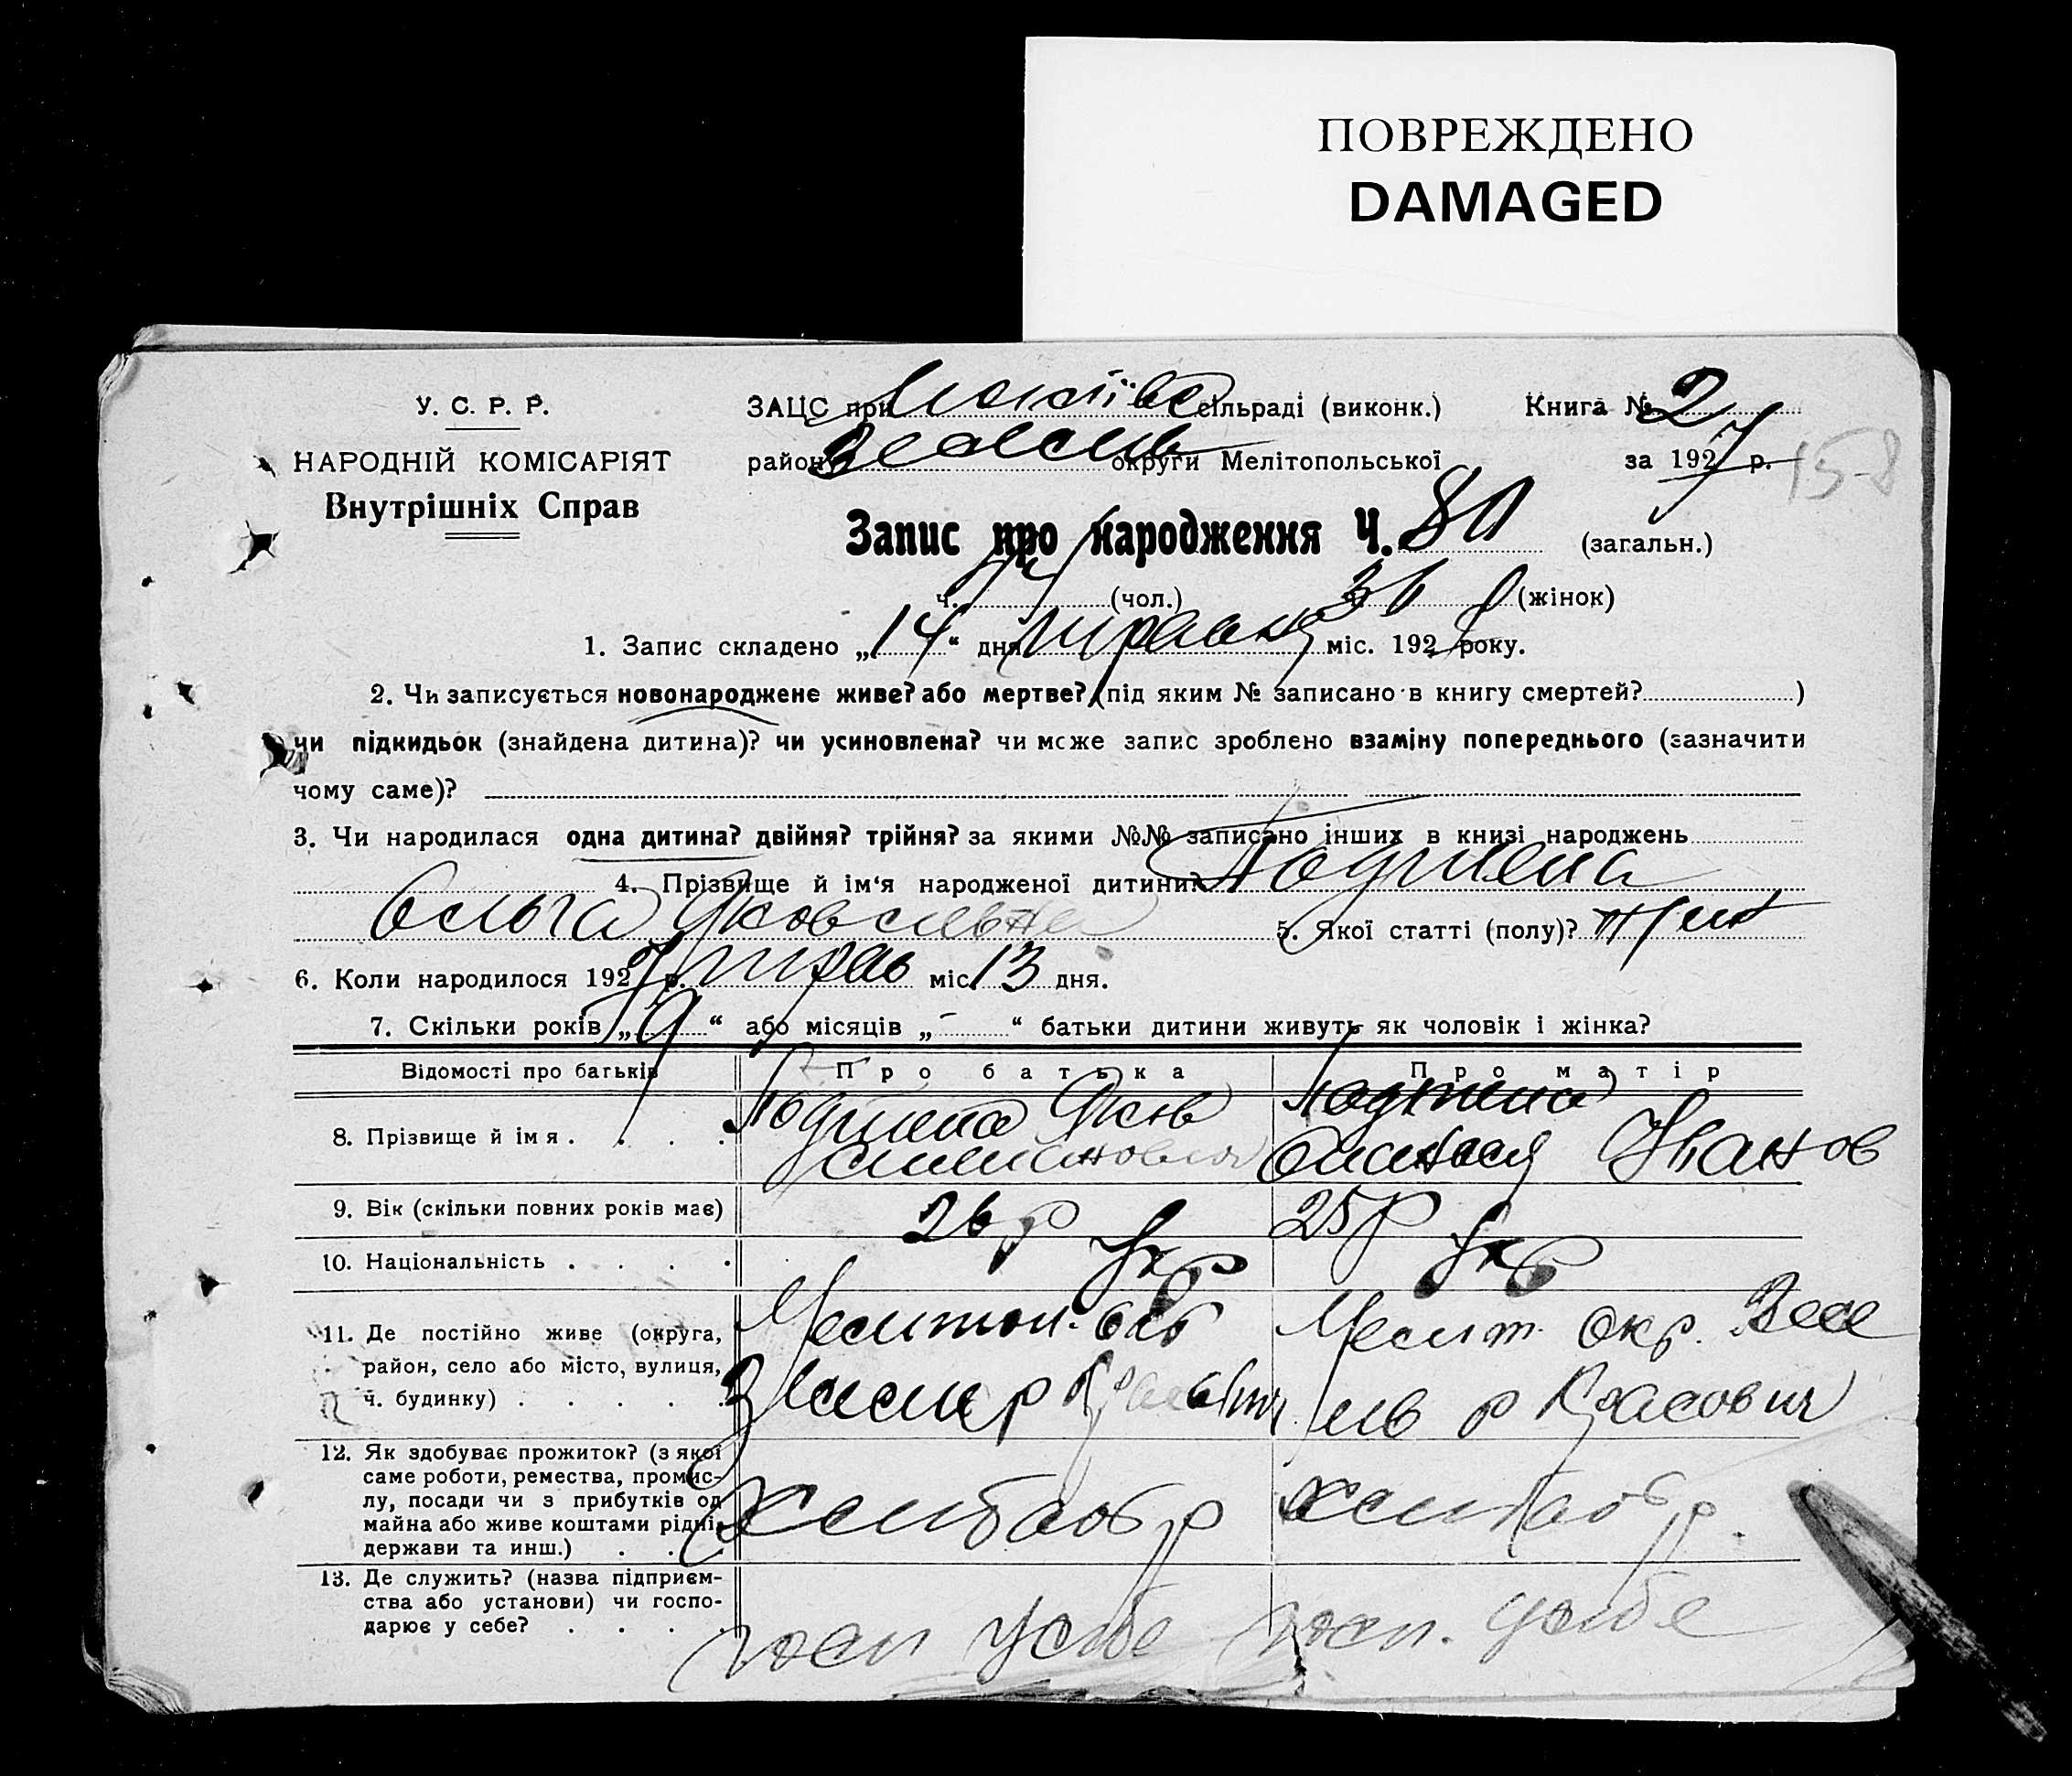 ПОВРЕЖДЕНО
DAMAGED
У. С. Р. Р.
НАРОДНІЙ КОМІСАРІЯТ
Внутрішніх Справ
ЗАЦС при сільраді (виконк.) Книга № 2
району округи Мелітопольської за 1927 р. 158
Запис про народження Ч. 80 (загальн.)
ч. 44 (чол.) 36 (жінок)
1. Запис складено „14“ дня травня міс. 1927 року.
2. Чи записується новонароджене живе? або мертве? (під яким № записано в книгу смертей? )
чи підкидьок (знайдена дитина)? чи усиновлена? чи може запис зроблено взаміну попереднього (зазначити
чому саме)?
3. Чи народилася одна дитина? двійня? трійня? за якими №№ записано інших в книзі народжень
4. Прізвище й ім‘я народженої дитини?
Ольга Яковлевна 5. Якої статті (полу)? жін
6. Коли народилося 1927 р. трав міс. 13 дня.
7. Скільки років „9“ або місяців „-“ батьки дитини живуть як чоловік і жінка?
Відомості про батьків Про батька Про матір
8. Прізвище й ім я . . . . Яков
Іванов
9. Вік (скільки повних років має) 26 р 25 р
10. Національність . . . . Укр Укр
11. Де постійно живе (округа, Мелитоп. окр Мелит. окр. Весе
район, село або місто, вулиця,
ч. будинку) . . . . .
12. Як здобуває прожиток? (з якої
саме роботи, ремества, промис-
лу, посади чи з прибутків од хлібороб хлібороб
майна або живе коштами рідні,
держави та инш.) . . .
13. Де служить? (назва підприєм-
ства або установи) чи госпо-
дарює у себе? . . . . госп у себе госп. у себе